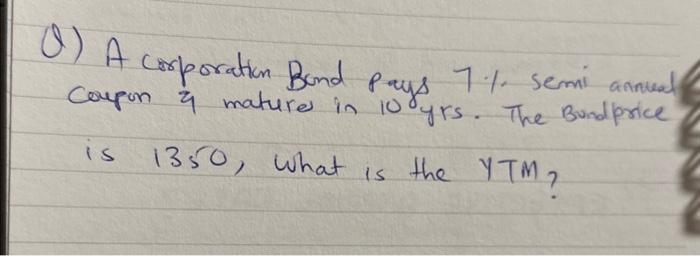 Q) A corporation Bond pays 7 %. semi annual
Coupon & matures in 10 yrs. The Bond price
is 1350, what is the YTM?